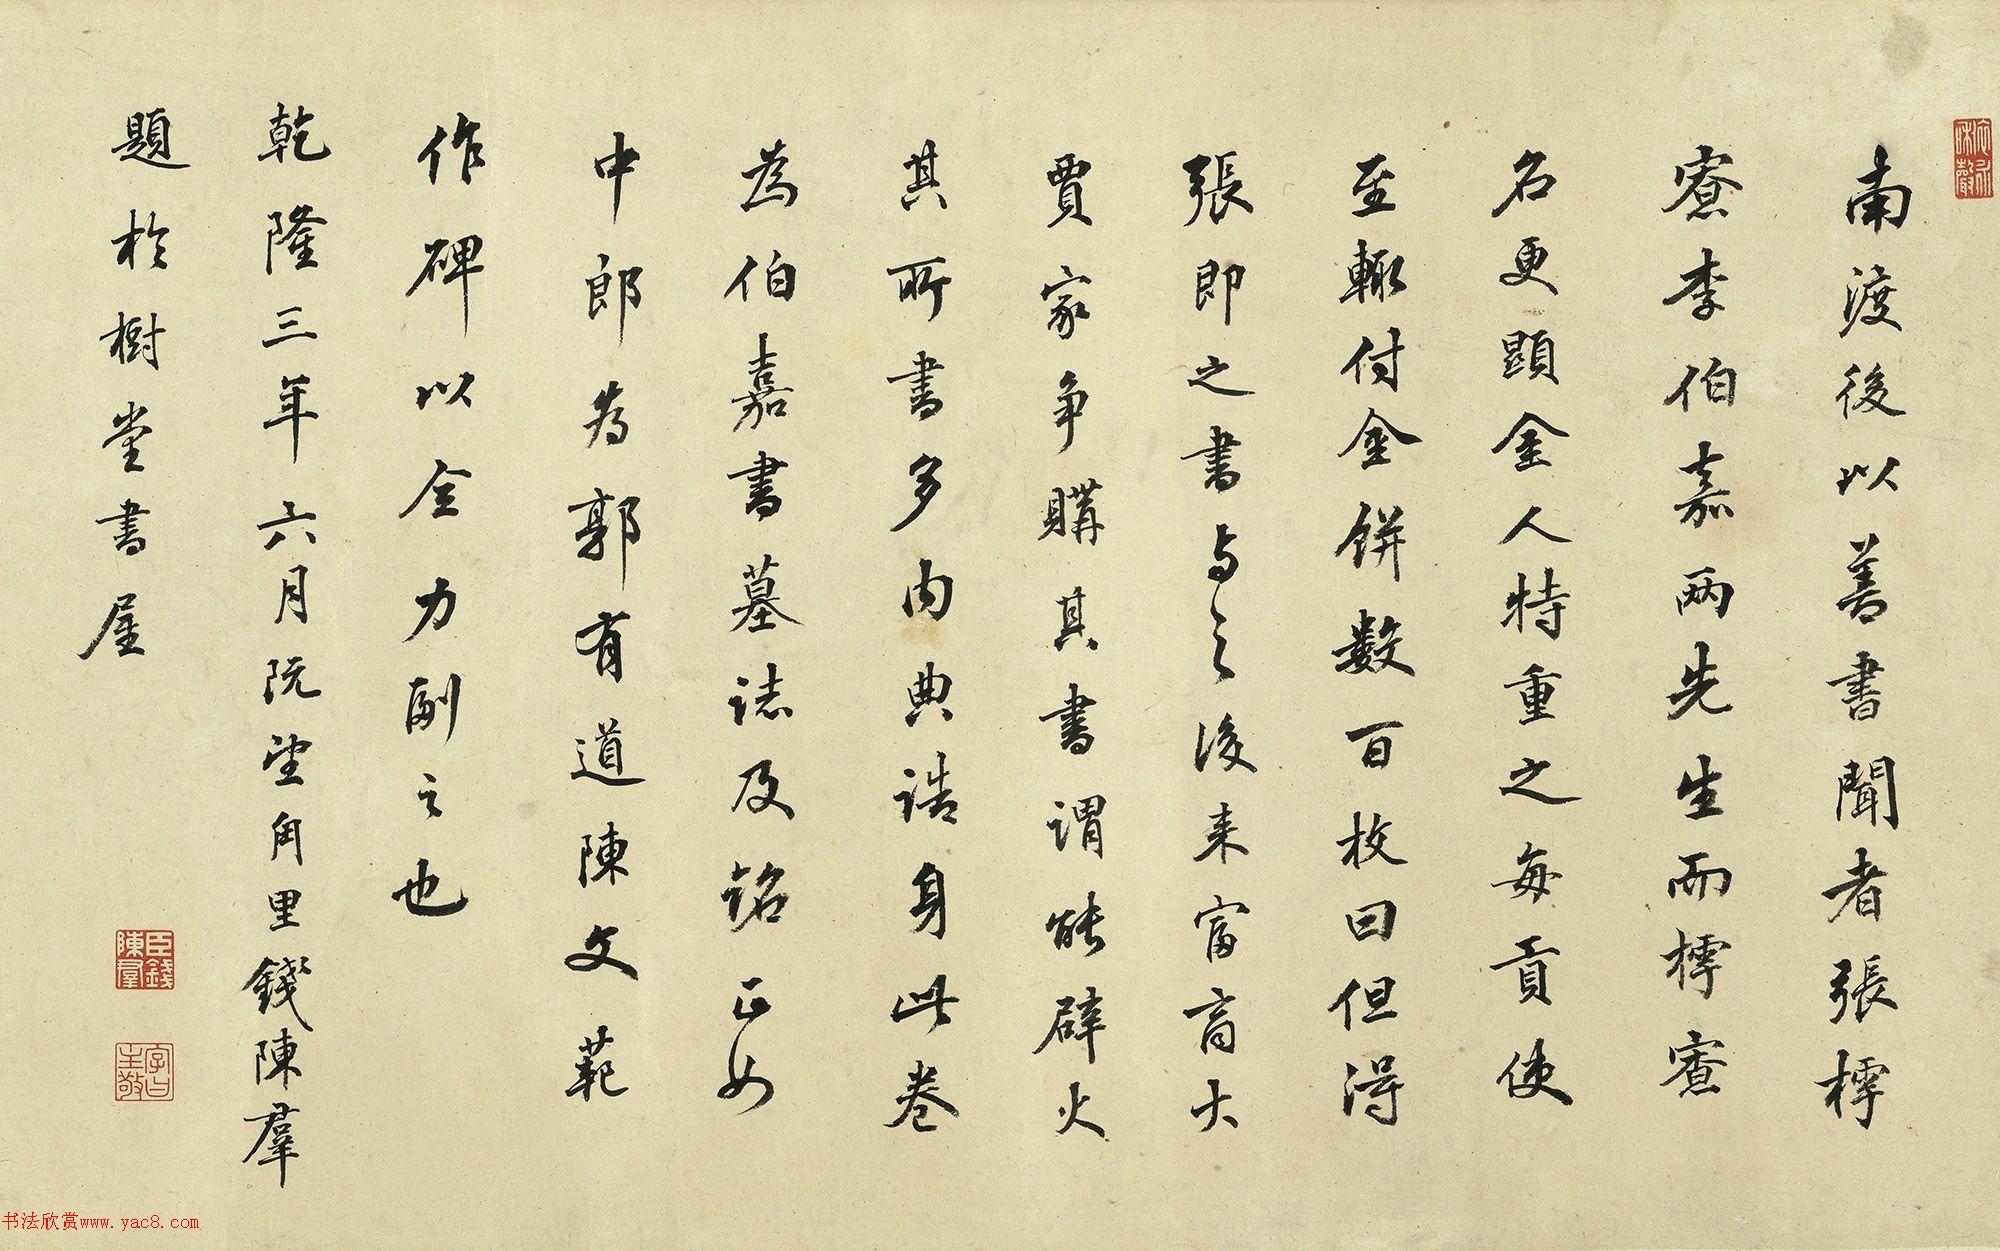 南渡後以善書聞者張樗
寮李伯嘉兩先生而樗寮
名更顕金人特重之每貢使
至輙付金餅數百枚曰但得
張即之書与之後来富商大
賈家争購其書謂能辟火
其所書多内典誥身此卷
為伯嘉書墓誌及銘正如
中郎為郭有道陳文範
作碑以全力副之也
乾隆三年六月既望角里錢陳羣
題於樹堂書屋
臣錢陳羣
字曰主敬
书法欣赏www.yac8.com